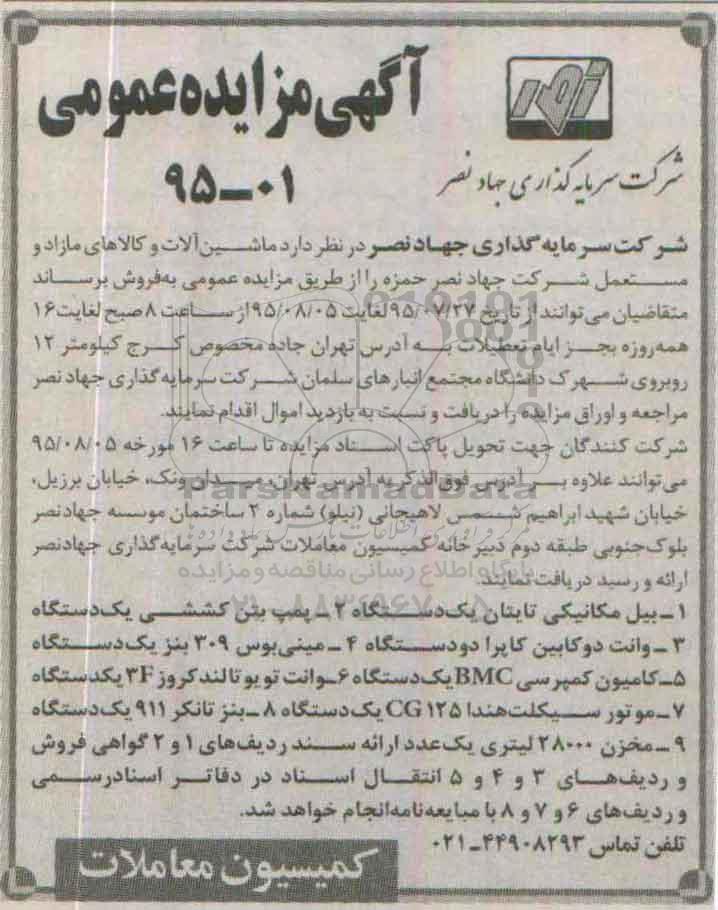 آگهی مزایده عمومی
۹۵-۰۱
شرکت سرمایه گذاری جهاد نصر
شرکت سرمایه گذاری جهاد نصر در نظر دارد ماشین آلات و کالاهای مازاد و
مستعمل شرکت جهاد نصر حمزه را از طریق مزایده عمومی به فروش برساند
متقاضیان می توانند از تاریخ ۹۵/۰۷/۲۷ لغایت ۹۵/۰۸/۰۵ از ساعت ۸ صبح لغایت ۱۶
همه روزه بجز ایام تعطیلات به آدرس تهران جاده مخصوص کرج کیلومتر ۱۲
روبروی شهرک دانشگاه مجتمع انبارهای سلمان شرکت سرمایه گذاری جهاد نصر
مراجعه و اوراق مزایده را دریافت و نسبت به بازدید اموال اقدام نمایند.
شرکت کنندگان جهت تحویل پاکت اسناد مزایده تا ساعت ۱۶ مورخه ۹۵/۰۸/۰۵
می توانند علاوه بر آدرس فوق الذکر به آدرس تهران، میدان ونک، خیابان برزیل،
خیابان شهید ابراهیم شمس لاهیجانی (نیلو) شماره ۲ ساختمان موسسه جهاد نصر
بلوک جنوبی طبقه دوم دبیرخانه کمیسیون معاملات شرکت سرمایه گذاری جهاد نصر
ارائه و رسید دریافت نمایند.
۱-بیل مکانیکی تایتان یک دستگاه ۲-پمپ بتن کششی یک دستگاه
۳-وانت دوکابین کاپرا دو دستگاه ۴-مینی بوس ۳۰۹ بنز یک دستگاه
۵-کامیون کمپرسی BMC یک دستگاه ۶-وانت تویوتا لندکروز ۳F یکدستگاه
۷-موتور سیکلت هندا CG۱۲۵ یک دستگاه ۸-بنز تانکر ۹۱۱ یک دستگاه
۹-مخزن ۲۸۰۰۰ لیتری یک عدد ارائه سند ردیف های ۱ و ۲ گواهی فروش
و ردیف های ۳ و ۴ و ۵ انتقال اسناد در دفاتر اسناد رسمی
و ردیف های ۶ و ۷ و ۸ با مبایعه نامه انجام خواهد شد.
تلفن تماس ۴۴۹۰۸۲۹۳-۰۲۱
کمیسیون معاملات
ParsNamadData
پایگاه اطلاع رسانی مناقصه و مزایده